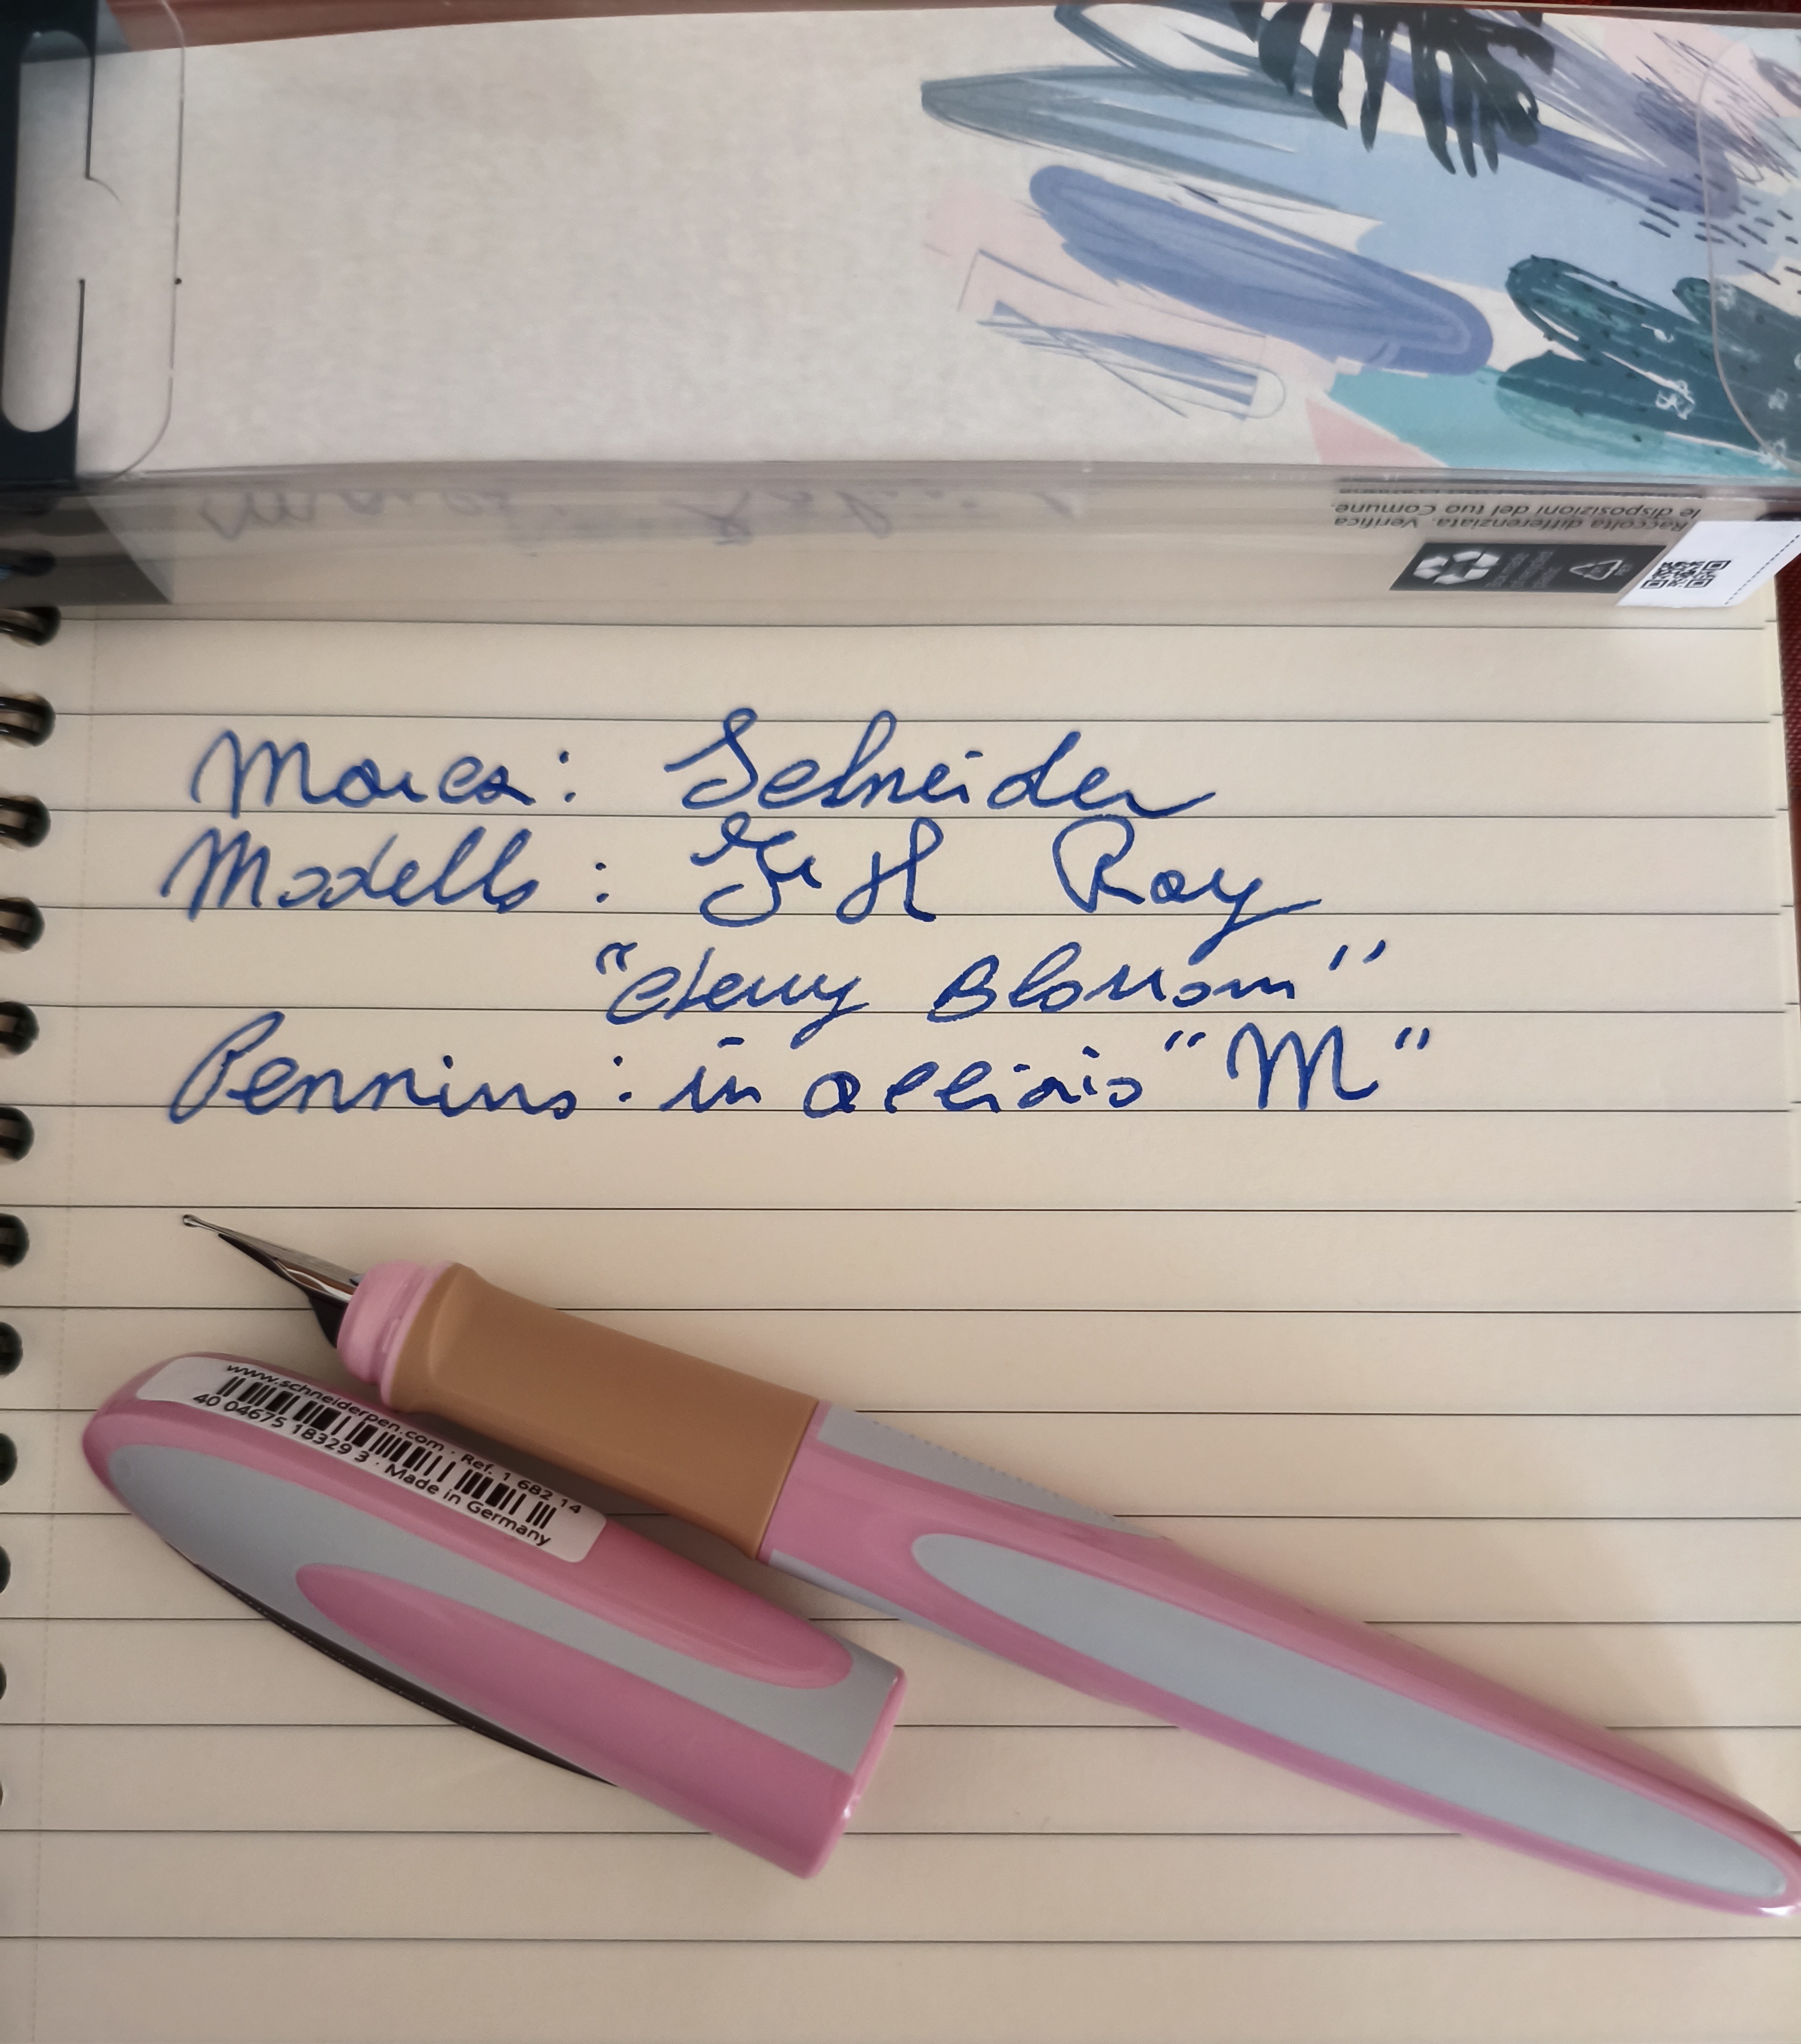 Raccolta differenziata. Verifica
le disposizioni del tuo Comune.
Marca: Schneider
Modello: Ray
"Cherry Blossom"
Pennino: in acciaio "M"
www.schneiderpen.com · Ref. 1 682 14
40 04675 18329 3 · Made in Germany